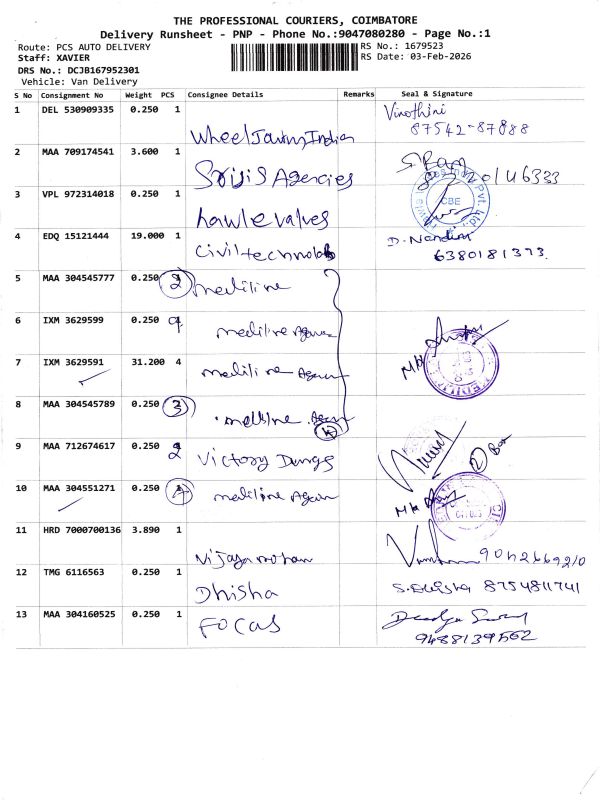 THE PROFESSIONAL COURIERS, COIMBATORE
Delivery Runsheet - PNP - Phone No.:9047080280 - Page No.:1
Route: PCS AUTO DELIVERY
RS No.: 1679523
Staff: XAVIER
RS Date: 03-Feb-2026
DRS No.: DCJB167952301
Vehicle: Van Delivery
S No Consignment No Weight PCS Consignee Details Remarks Seal & Signature
1 DEL 530909335 0.250 1 Vinothini
87542-87888
Wheel India
2 MAA 709174541 3.600 1
Agencies
3 VPL 972314018 0.250 1
CBE
hawle valves
4 EDQ 15121444 19.000 1 D. Nandini
Civil 6380181373
5 MAA 304545777 0.250 2 mediline
6 IXM 3629599 0.250
mediline Agen
7 IXM 3629591 31.200 4
mediline Agen
8 MAA 304545789 0.250 3
9 MAA 712674617 0.250 2
Victory Dungs
10 MAA 304551271 0.250 4
mediline Agen
11 HRD 7000700136 3.890 1
Vijaya mohan
12 TMG 6116563 0.250 1
Dhisha 8754811741
13 MAA 304160525 0.250 1
FOCAS